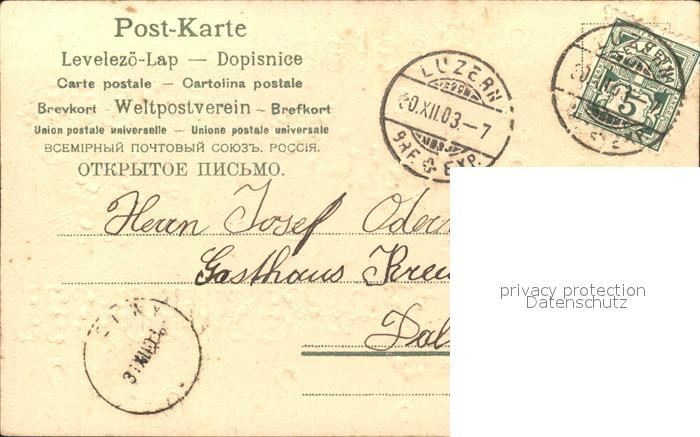 Post-Karte
Levelező-Lap — Dopisnice
Carte postale — Cartolina postale
Brevkort - Weltpostverein - Brefkort
Union postale universelle — Unione postale universale
ВСЕМІРНЫЙ ПОЧТОВЫЙ СОЮЗЪ. РОССІЯ.
ОТКРЫТОЕ ПИСЬМО.
LUZERN
30.XII.03.-7
BRF. EXP.
5
Herrn Josef
Gasthaus
31 XII 03
privacy protection
Datenschutz